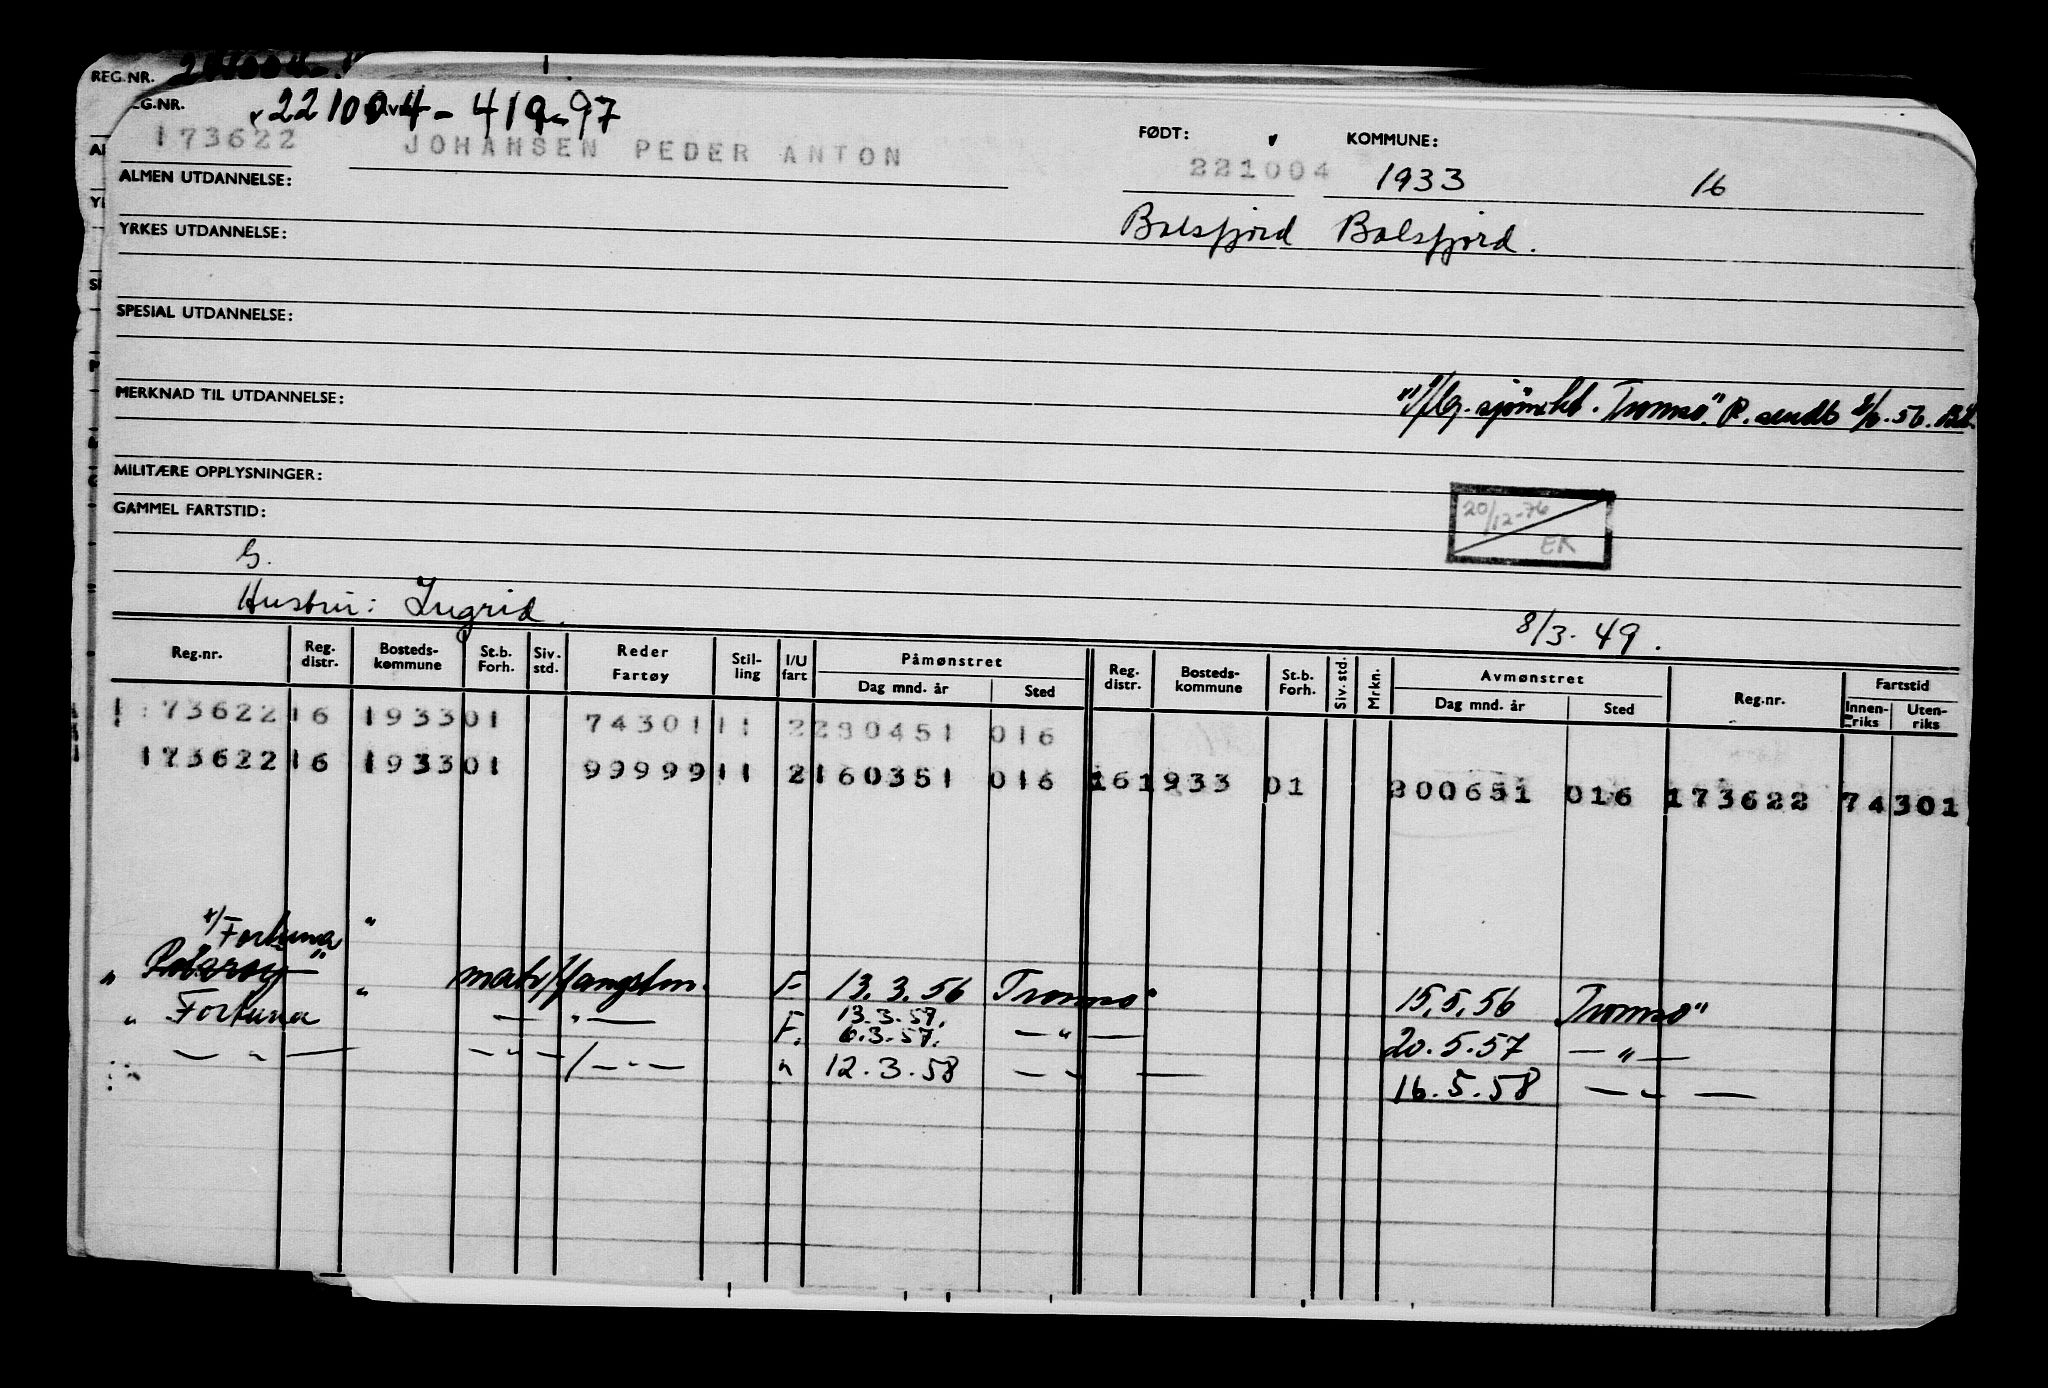 REG.NR.
221004-419-97
173622 JOHANSEN PEDER ANTON FØDT: 221004 KOMMUNE: 1933 16
ALMEN UTDANNELSE:
Balsfjord Balsfjord.
YRKES UTDANNELSE:
SPESIAL UTDANNELSE:
MERKNAD TIL UTDANNELSE:
x) Iflg. sjömkt. "Tromsø" sendt
MILITÆRE OPPLYSNINGER:
20/12-76 EK
GAMMEL FARTSTID:
G.
Hustru: Ingrid. 8/3-49.
Reg.nr. Reg. distr. Bosteds-kommune St.b. Forh. Siv. std. Reder Fartøy Stil-ling I/U fart Påmønstret Dag mnd. år Sted Reg. distr. Bosteds-kommune St.b. Forh. Siv. std. Mrkn. Avmønstret Dag mnd. år Sted Reg.nr. Fartstid Innen-riks Uten-riks
173622 16 1933 01 74301 11 2 280451 016
173622 16 1933 01 99999 11 2 160351 016 16 1933 01 300651 016 173622 74301
x/ Fortuna "
" " matr/fangstm. F 13.3.56 Tromsø 15.5.56 Tromsø"
" Fortuna " — " — F. 13.3.57. 6.3.57. — " — 20.5.57 — " —
— " — — " — / — " — " 12.3.58 — " — 16.5.58 — " —